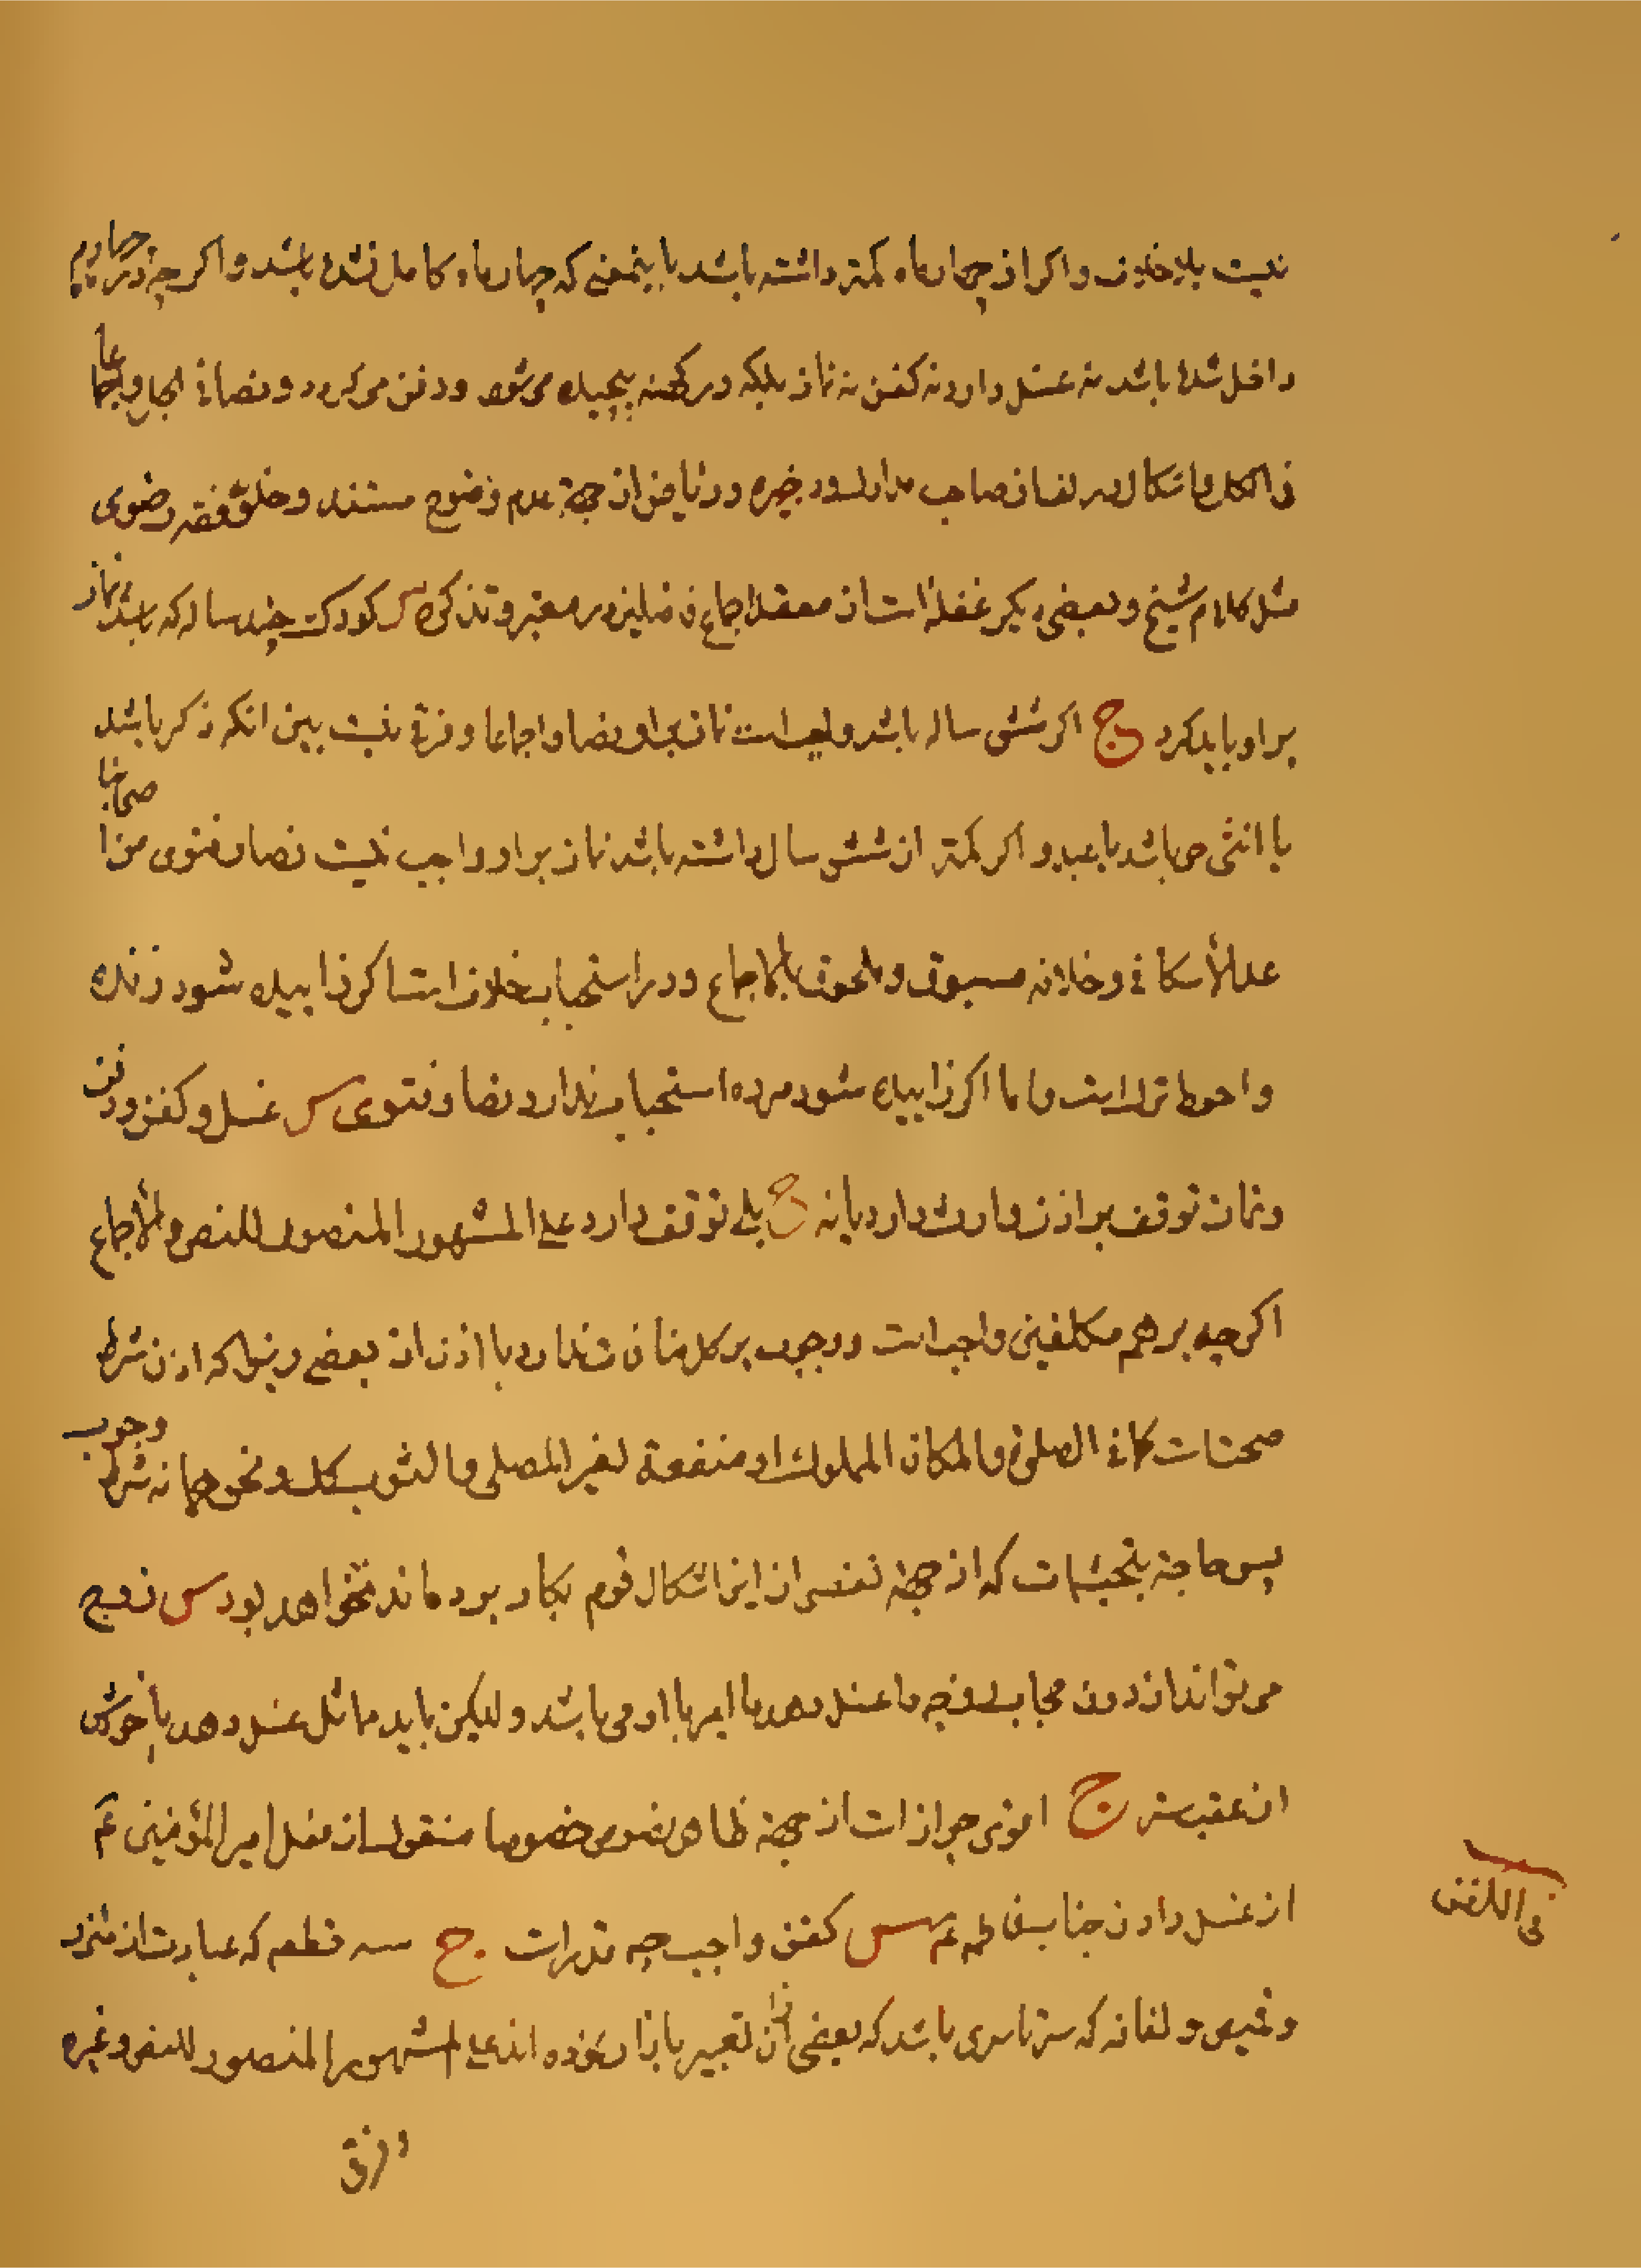 نیست بلاخلاف و اکر از چهار ماه کمتر داشته باشد باینمعنی که چهار ماه کامل نشده باشد و اکرچه در چهارم
داخل شده باشد نه غسل دارد نه کفن نه نماز بلکه در کهنه پیچیده می‌شود و دفن می‌کردد و نصا فی الجمله و اجماعا
فی الکل و اشکال در لفافه صاحب مدارک و در ذخیره و ریاض از جهة عدم وضوح مستند و خلو فقه رضوی
مثل کلام شیخ و بعضی دیکر غفلة است از معقد اجماع فاضلین در معتبر و تذکره س کودک چند ساله که باشد نماز
بر او باید کرد ج اکر شش ساله باشد واجب است نماز بر او نصا و اجماعا و فرقی نیست بین انکه ذکر باشد
یا انثی حر باشد یا عبد و اکر کمتر از شش سال داشته باشد نماز بر او واجب نیست نصا و فتوی من اصحابنا
عدا الأسکافی و خلافه مسبوق و ملحوق بالاجماع و در استحباب خلاف است اکر زاییده شود زنده
و احوط ترک است و اما اکر زاییده شود مرده استحباب ندارد نصا و فتوی س غسل و کفن و دفن
و نماز توقف بر اذن وارث دارد یا نه ج بلی توقف دارد علی المشهور المنصور للنص و الأجماع
اکرچه بر همه مکلفین واجب است و وجوب بر کل منافات ندارد با اذن از بعضی دینوا که اذن شرط
صحت است کما فی الصلوة و المکان المملوک او منفعة لغیر المصلی و الثوب کک و نحوهما نه شرط وجوب
پس حاجة بتجشمات که از جهة تفصی از این اشکال قوم بکار برده‌اند نخواهد بود س زوج
می‌تواند از درون حجاب زوجه را غسل دهد یا امر با او می باشد و لیکن باید مماثل غسل دهد یا خودش
از عقب ستر ج اقوی جواز است از جهة ظاهر نصوص خصوصا منقول از فعل امیر المؤمنین عم
از غسل دادن جناب فاطمه عم س کفن واجب چه قدر است ج سه قطعه که عبارت از مئزر
و قمیص و لفافه که سرتاسری باشد که بعضی از ان تعبیر بازار نموده‌اند علی المشهور المنصور للنص و غیره
فی الکفن